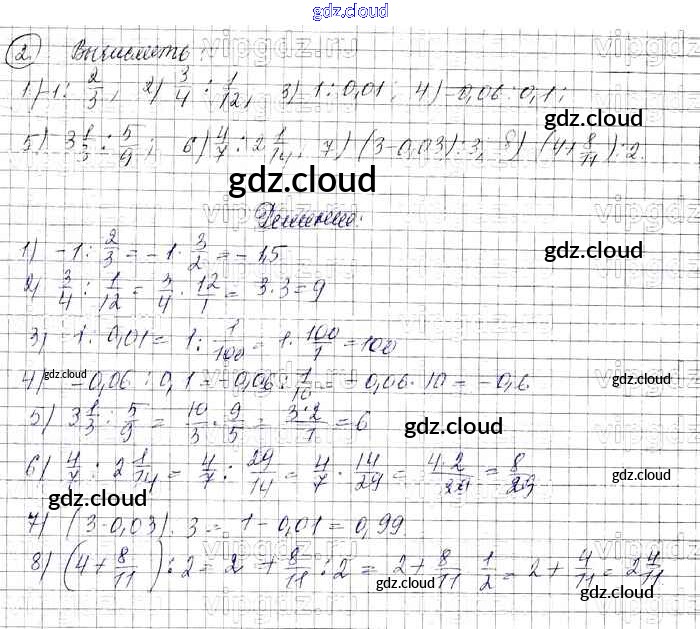 gdz.cloud
2. Вычислить:
1) -1 : 2/3, 2) 3/4 : 1/12, 3) 1 : 0,01; 4) -0,06 : 0,1;
gdz.cloud
5) 3 1/3 : 5/9; 6) 4/7 : 2 1/14, 7) (3-0,03) : 3, 8) (4+8/11) : 2.
gdz.cloud
gdz.cloud
Решение:
gdz.cloud
1) -1 : 2/3 = -1 · 3/2 = -1,5
2) 3/4 : 1/12 = 3/4 · 12/1 = 3·3 = 9
3) 1 : 0,01 = 1 : 1/100 = 1 · 100/1 = 100
gdz.cloud gdz.cloud
4) -0,06 : 0,1 = -0,06 : 1/10 = -0,06 · 10 = -0,6
5) 3 1/3 : 5/9 = 10/3 · 9/5 = 3·2/1 = 6
gdz.cloud
6) 4/7 : 2 1/14 = 4/7 : 29/14 = 4/7 · 14/29 = 4·2/29 = 8/29
gdz.cloud
gdz.cloud
7) (3-0,03) : 3 = 1 - 0,01 = 0,99
gdz.cloud
8) (4+8/11) : 2 = 2 + 8/11 : 2 = 2 + 8/11 · 1/2 = 2 + 4/11 = 2 4/11
gdz.cloud gdz.cloud